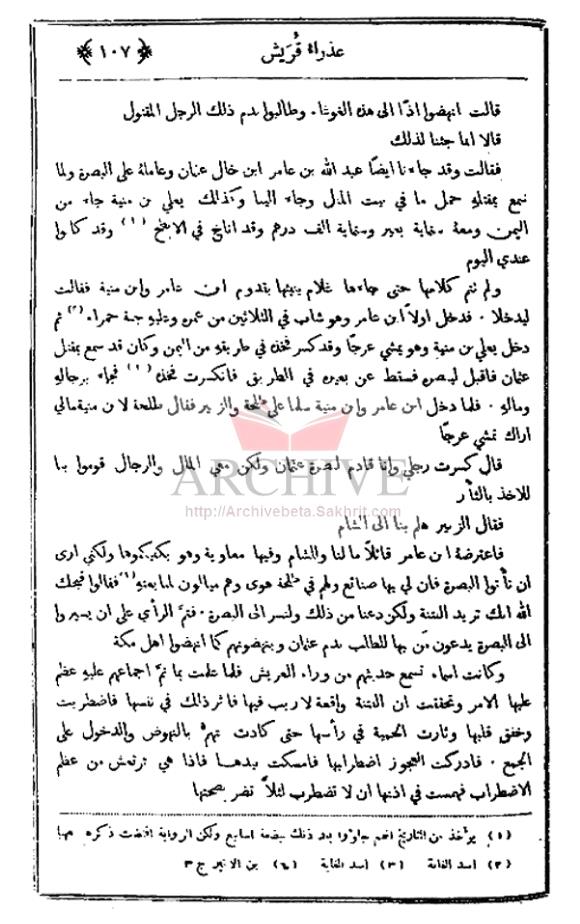 عذراء قُرَيش ﴿ ١٠٧ ﴾
قالت انهضوا اذًا الى هذه الغوغاء وطالبوا بدم ذلك الرجل المقتول
قالا انما جئنا لذلك
فقالت وقد جاءنا ايضًا عبد الله بن عامر ابن خال عثمان وعامله على البصرة ولما
سمع بمقتله حمل ما في بيت المال وجاء الينا وكذلك يعلي بن منية جاء من
اليمن ومعه ستماية بعير وستماية الف درهم وقد اناخ في الابطح (١) وقد كانوا
عندي اليوم
ولم تتم كلامها حتى جاءها غلام ينبئها بقدوم ابن عامر وابن منية فقالت
ليدخلا . فدخل اولًا ابن عامر وهو شاب في الثلاثين من عمره وعليه جبة حمراء (٢) ثم
دخل يعلي بن منية وهو يمشي عرجًا وقد كسر فخذه في طريقه من اليمن وكان قد سمع بمقتل
عثمان فاقبل لينصره فسقط عن بعيره في الطريق فانكسرت فخذه (٣) فجاء برجاله
وماله . فلما دخل ابن عامر وابن منية سلما على طلحة والزبير فقال طلحة لابن منية مالي
اراك تمشي عرجًا
قال كسرت رجلي وانا قادم لنصرة عثمان ولكن معي المال والرجال قوموا بنا
للاخذ بالثأر
فقال الزبير هلم بنا الى الشام
فاعترضه ابن عامر قائلًا ما لنا والشام وفيها معاوية وهو يكفيكموها ولكني ارى
ان تأتوا البصرة فان لي بها صنائع ولهم في طلحة هوى وهم ميالون لمبايعته (٤) فقالوا قبحك
الله انك تريد الفتنة ولكن دعنا من ذلك ولنسر الى البصرة . فتمَّ الرأي على ان يسيروا
الى البصرة يدعون مَن بها للطلب بدم عثمان وينهضونهم كما انهضوا اهل مكة
وكانت اسماء تسمع حديثهم من وراء العريش فلما علمت بما تمَّ اجماعهم عليه عظم
عليها الامر وتحققت ان الفتنة واقعة لا ريب فيها فأثر ذلك في نفسها فاضطربت
وخفق قلبها وثارت الحمية في رأسها حتى كادت تهمّ بالنهوض والدخول على
الجمع . فادركت العجوز اضطرابها فامسكت بيدها فاذا هي ترتعش من عظم
الاضطراب فهمست في اذنها ان لا تضطرب لئلَّا تضر بصحتها
(١) يؤخذ من التاريخ انهم جاؤوا بعد ذلك ببضعة اسابيع ولكن الرواية اقتضت ذكره هنا
(٢) اسد الغابة (٣) اسد الغابة (٤) بن الاثير ج ٣
ARCHIVE
http://Archivebeta.Sakhrit.com